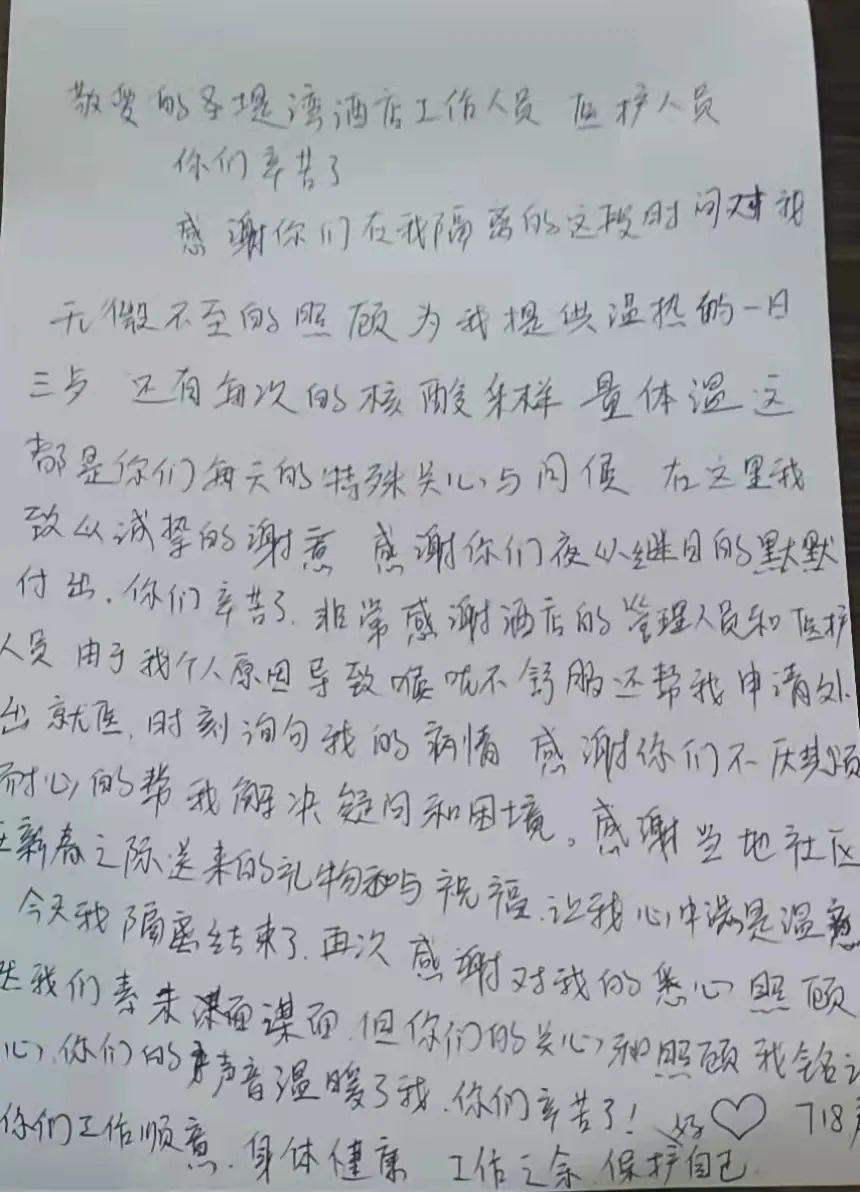 敬爱的圣堤湾酒店工作人员 医护人员
你们辛苦了
感谢你们在我隔离的这段时间对我
无微不至的照顾为我提供温热的一日
三歺 还有每次的核酸采样 量体温这
都是你们每天的特殊关心与问候 在这里我
致以诚挚的谢意 感谢你们夜以继日的默默
付出.你们辛苦了.非常感谢酒店的管理人员和医护
人员 由于我个人原因导致喉咙不舒服还帮我申请外
出就医,时刻询问我的病情 感谢你们不厌其烦
耐心的帮我解决疑问和困境。感谢当地社区
新春之际送来的礼物和与祝福.让我心中满是温
今天我隔离结束了.再次感谢对我的悉心照顾
我们素未谋面 谋面.但你们的关心和照顾我会
心.你们的声音温暖了我.你们辛苦了!
你们工作顺意.身体健康 工作之余.保护自己 好♡ 718